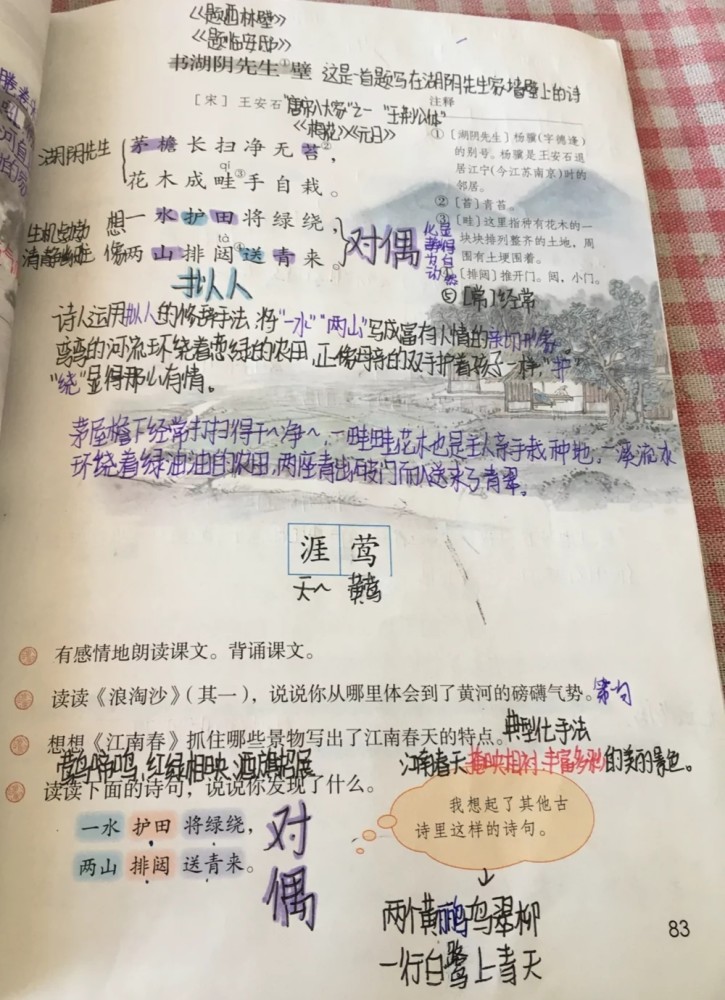 《题西林壁》
《题临安邸》
书湖阴先生①壁 这是一首题写在湖阴先生家墙壁上的诗
[宋] 王安石 "唐宋八大家"之一 "王荆公体"
《梅花》《元日》
湖阴先生
茅檐长扫净无苔②,
qí
花木成畦③手自栽。
生机勃勃 想 一水护田将绿绕,
清静
两山排闼④送青来。
tà
对偶
拟人
注释
① [湖阴先生] 杨骥(字德逢)
的别号。杨骥是王安石退
居江宁(今江苏南京)时的
邻居。
② [苔] 青苔。
③ [畦] 这里指种有花木的一
块块排列整齐的土地,周
围有土埂围着。
[排闼] 推开门。闼,小门。
⑤ [常] 经常
诗人运用拟人的修辞手法,将"一水""两山"写成富有人情的亲切形象
弯弯的河流环绕着葱绿的农田,正像母亲的双手护着孩子一样,"护"
"绕"显得那么有情。
茅屋檐下经常打扫得干干净净,一畦畦花木也是主人亲手栽种地,一溪流水
环绕着绿油油的农田,两座青山破门而入送来了青翠。
涯 莺
天~ 黄莺
有感情地朗读课文。背诵课文。
读读《浪淘沙》(其一),说说你从哪里体会到了黄河的磅礴气势。
想想《江南春》抓住哪些景物写出了江南春天的特点。典型化手法
莺鸟啼鸣,红绿相映,酒旗招展
江南春天掩映相衬、丰富多彩的美丽景色。
读读下面的诗句,说说你发现了什么。
一水 护田 将绿绕,
两山 排闼 送青来。
对偶
我想起了其他古
诗里这样的诗句。
两个黄鹂鸣翠柳
一行白鹭上青天
83